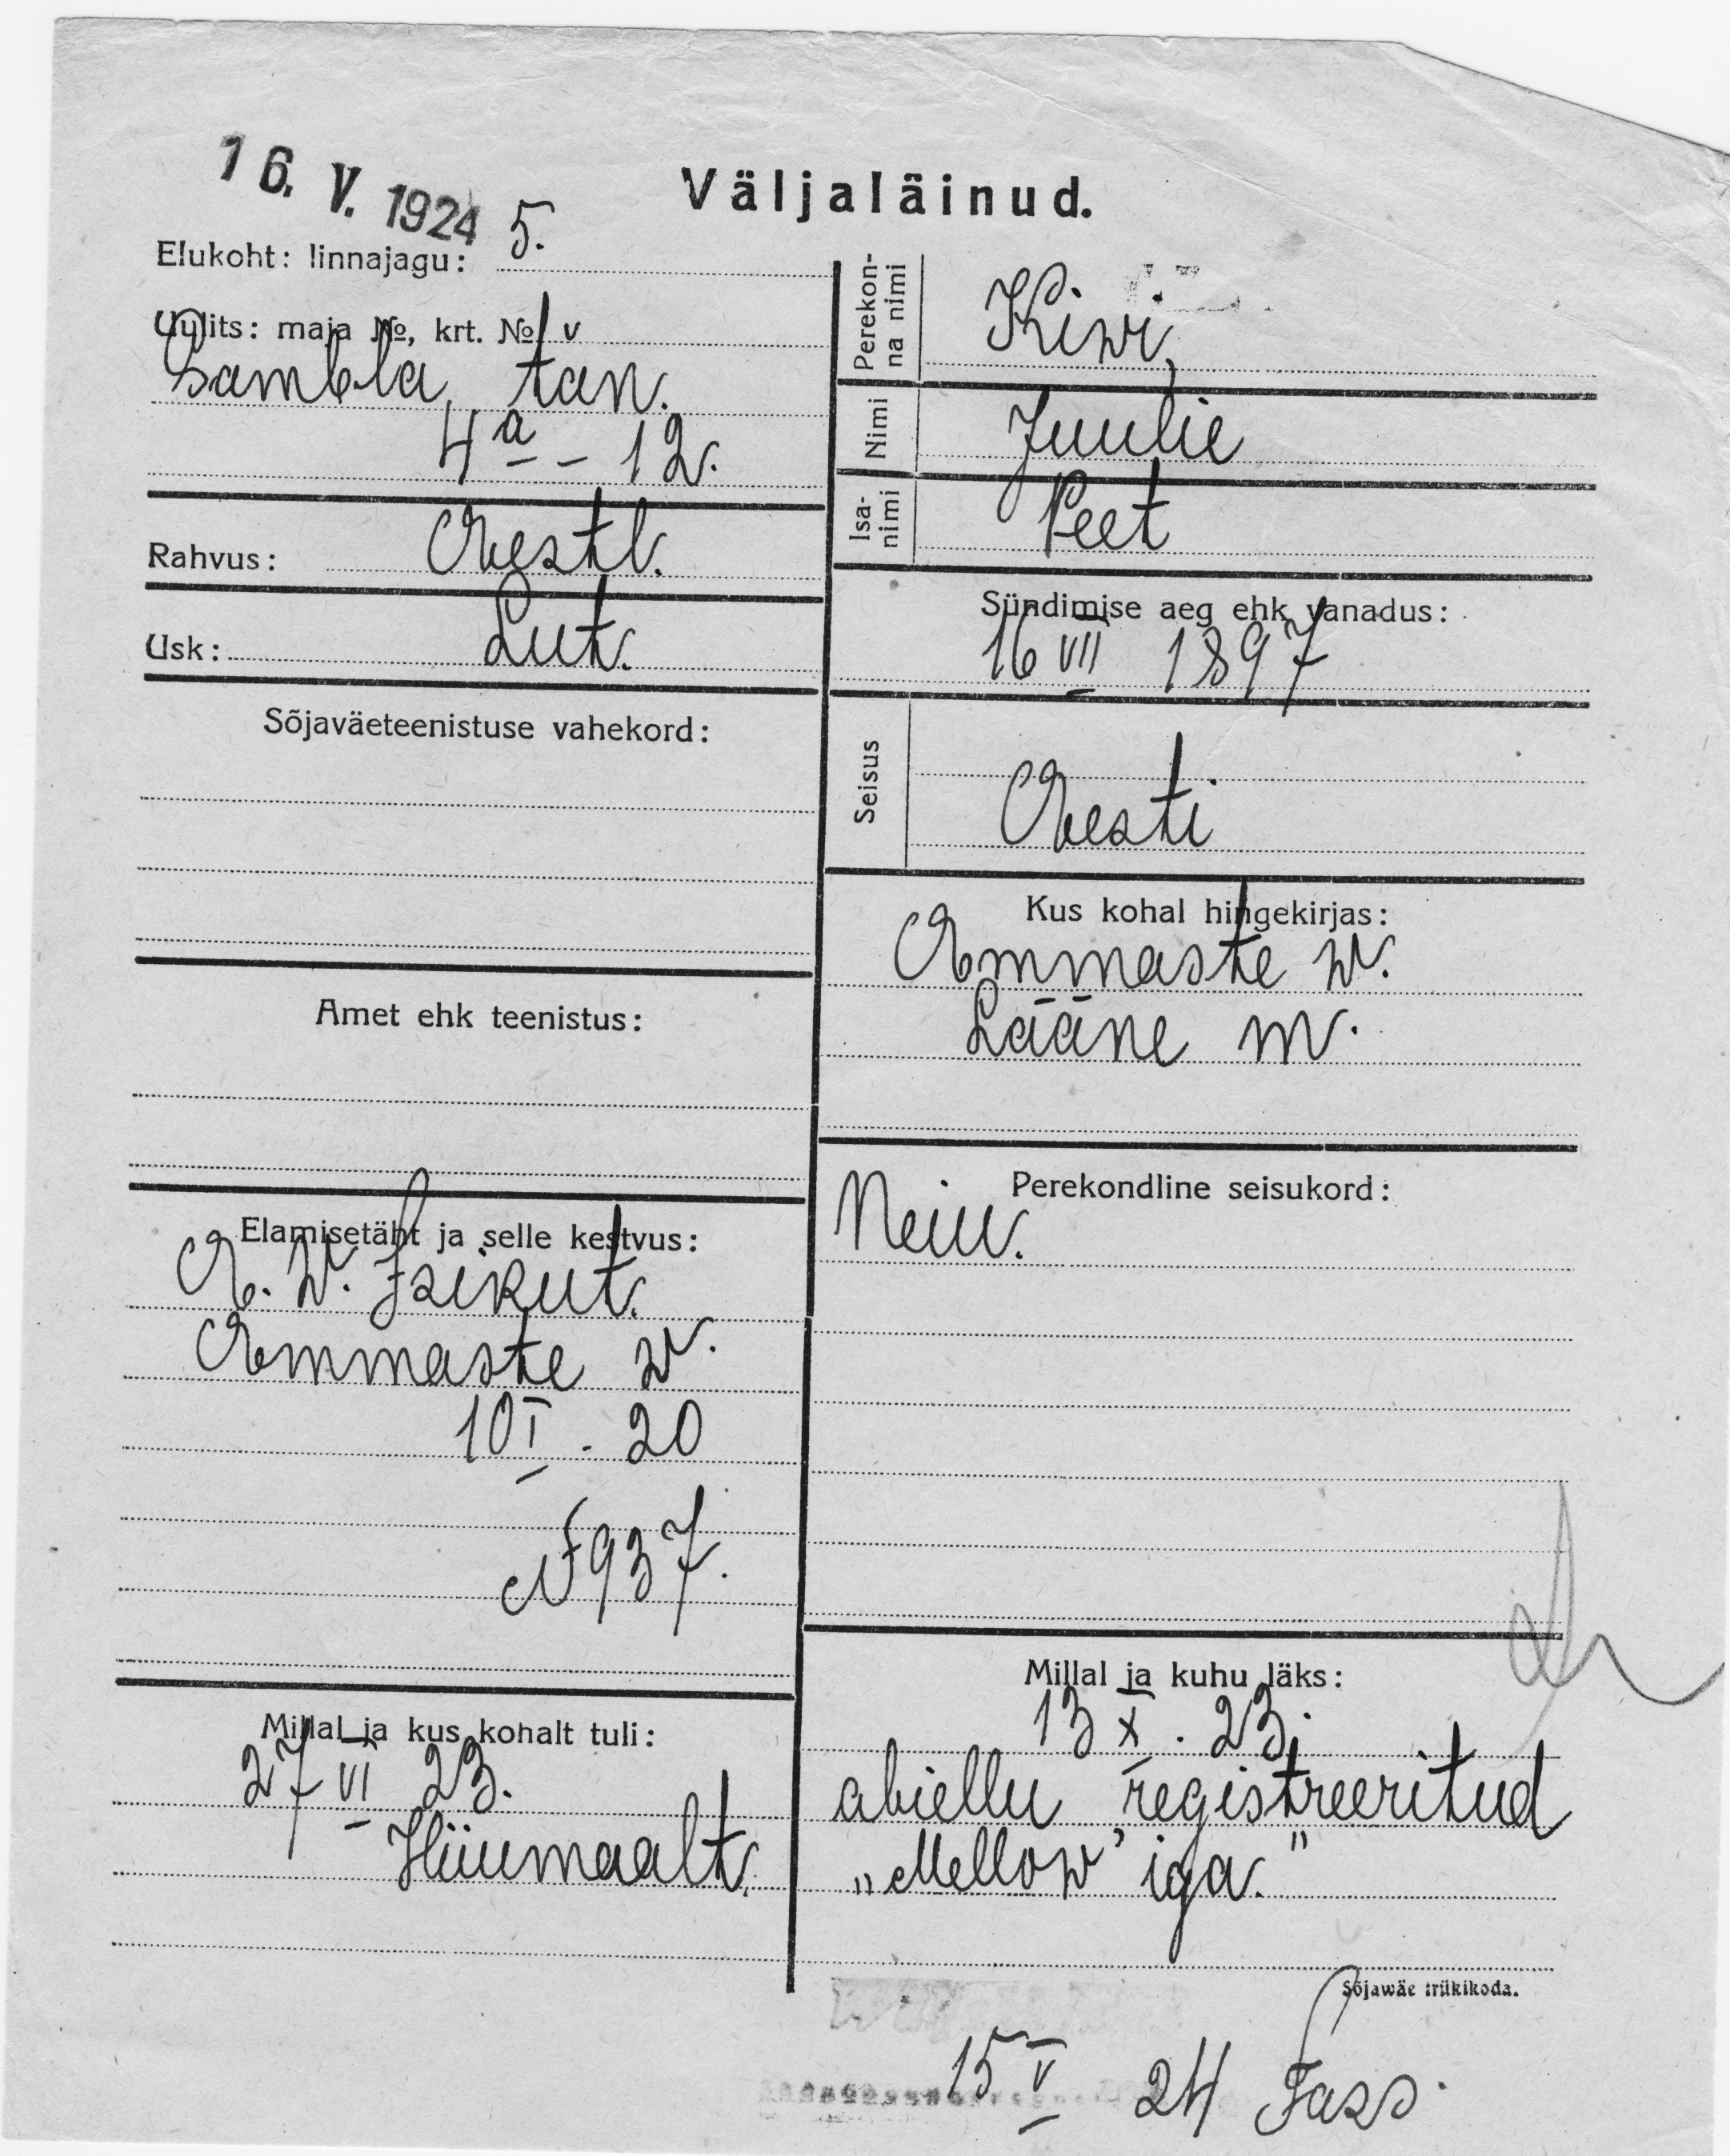 16. V. 1924
Väljaläinud.
Elukoht: linnajagu: 5.
Uulits: maja №, krt. № v
Sambla tan.
4a - 12.
Rahvus: Eestl.
Usk: Lut.
Sõjaväeteenistuse vahekord:
Amet ehk teenistus:
Elamisetäht ja selle kestvus:
E. W. Isikut.
Emmaste w.
10 I. 20
№ 937.
Millal ja kus kohalt tuli:
27 VI 23.
Hiiumaalt.
Perekonna nimi Kiwi,
Nimi Juulie
Isanimi Peet
Sündimise aeg ehk vanadus:
16 VII 1897
Seisus
Eesti
Kus kohal hingekirjas:
Emmaste w.
Lääne m.
Perekondline seisukord:
Neiu.
Millal ja kuhu läks:
13 X. 23.
abiellu registreeritud
„Mellow'iga."
Sõjawäe trükikoda.
15 V 24